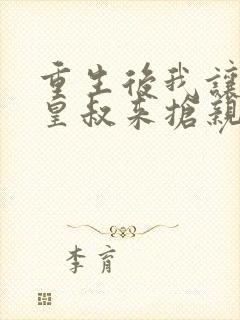 重生後我讓
皇叔来搶親
李育